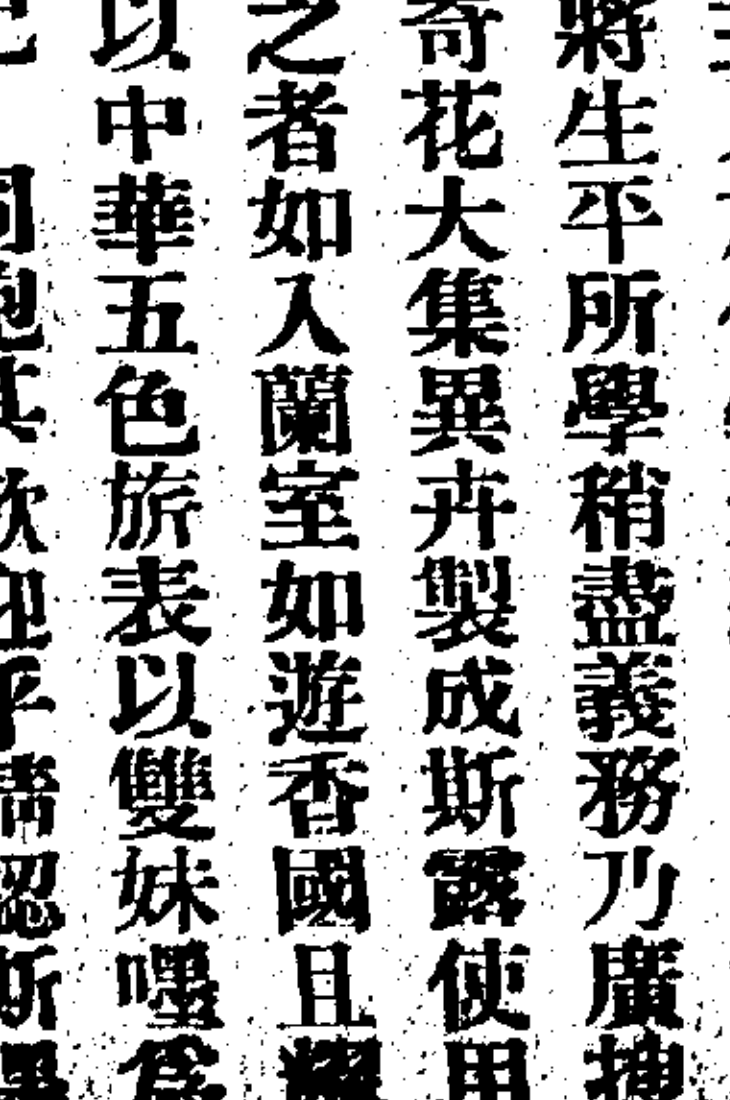 將生平所學稍盡義務乃廣搜
奇花大集異卉製成斯露使用
之者如入蘭室如遊香國且耀
以中華五色旂表以雙妹嚜為
認斯